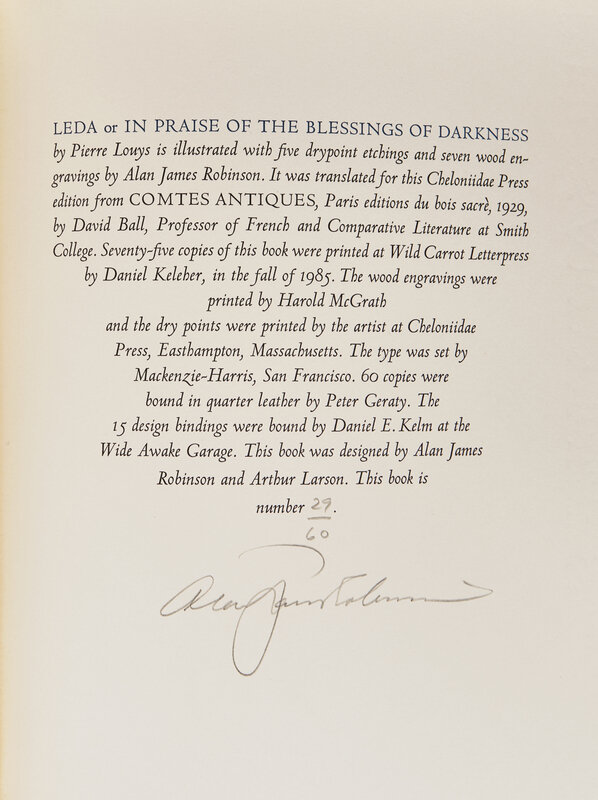 LEDA or IN PRAISE OF THE BLESSINGS OF DARKNESS
by Pierre Louys is illustrated with five drypoint etchings and seven wood en-
gravings by Alan James Robinson. It was translated for this Cheloniidae Press
edition from COMTES ANTIQUES, Paris editions du bois sacrè, 1929,
by David Ball, Professor of French and Comparative Literature at Smith
College. Seventy-five copies of this book were printed at Wild Carrot Letterpress
by Daniel Keleher, in the fall of 1985. The wood engravings were
printed by Harold McGrath
and the dry points were printed by the artist at Cheloniidae
Press, Easthampton, Massachusetts. The type was set by
Mackenzie-Harris, San Francisco. 60 copies were
bound in quarter leather by Peter Geraty. The
15 design bindings were bound by Daniel E. Kelm at the
Wide Awake Garage. This book was designed by Alan James
Robinson and Arthur Larson. This book is
number 29.
60
Alan James Robinson